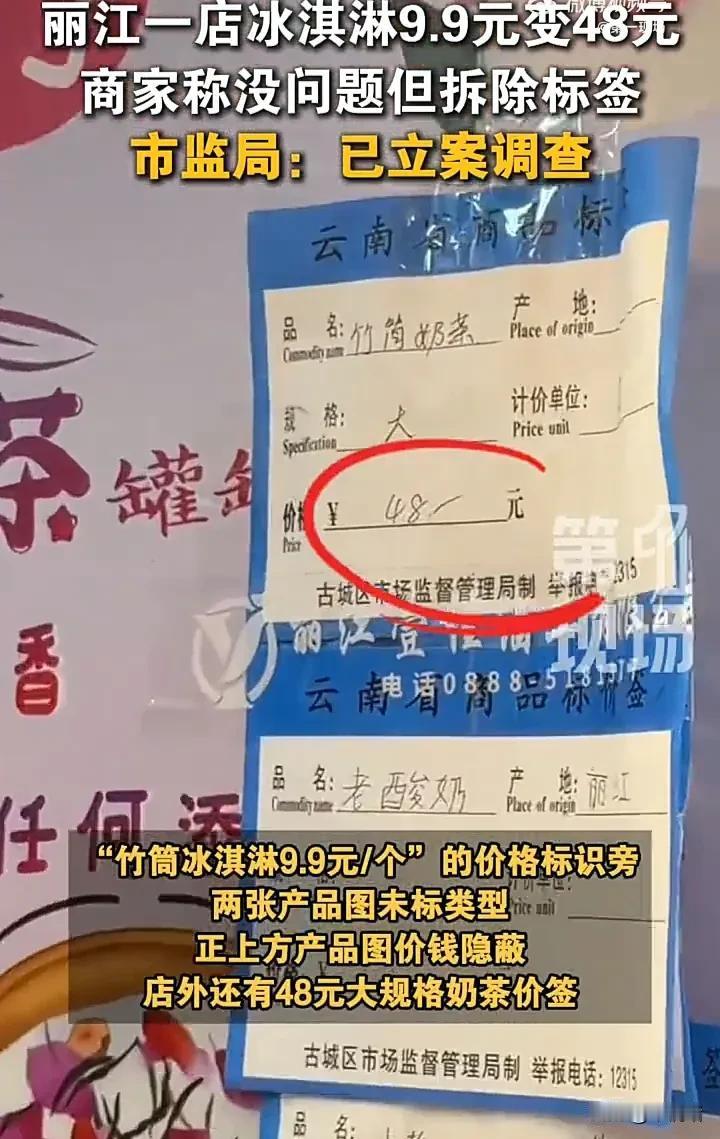 丽江一店冰淇淋9.9元变48元
商家称没问题但拆除标签
市监局：已立案调查
云南省商品标
品 名: 竹筒奶茶 产 地:
Commodity name Place of origin
规 格: 大 计价单位:
Specification Price unit
价格 ¥ 48 元
Price
古城区市场监督管理局制 举报电话:12315
茶 罐罐
第一现场
电话0888-518
云南省商品标价签
香
品 名: 老酸奶 产 地: 丽江
Commodity name Place of origin
任何添
“竹筒冰淇淋9.9元/个”的价格标识旁
两张产品图未标类型
Price unit
正上方产品图价钱隐蔽
店外还有48元大规格奶茶价签
古城区市场监督管理局制 举报电话: 12315
品 名: